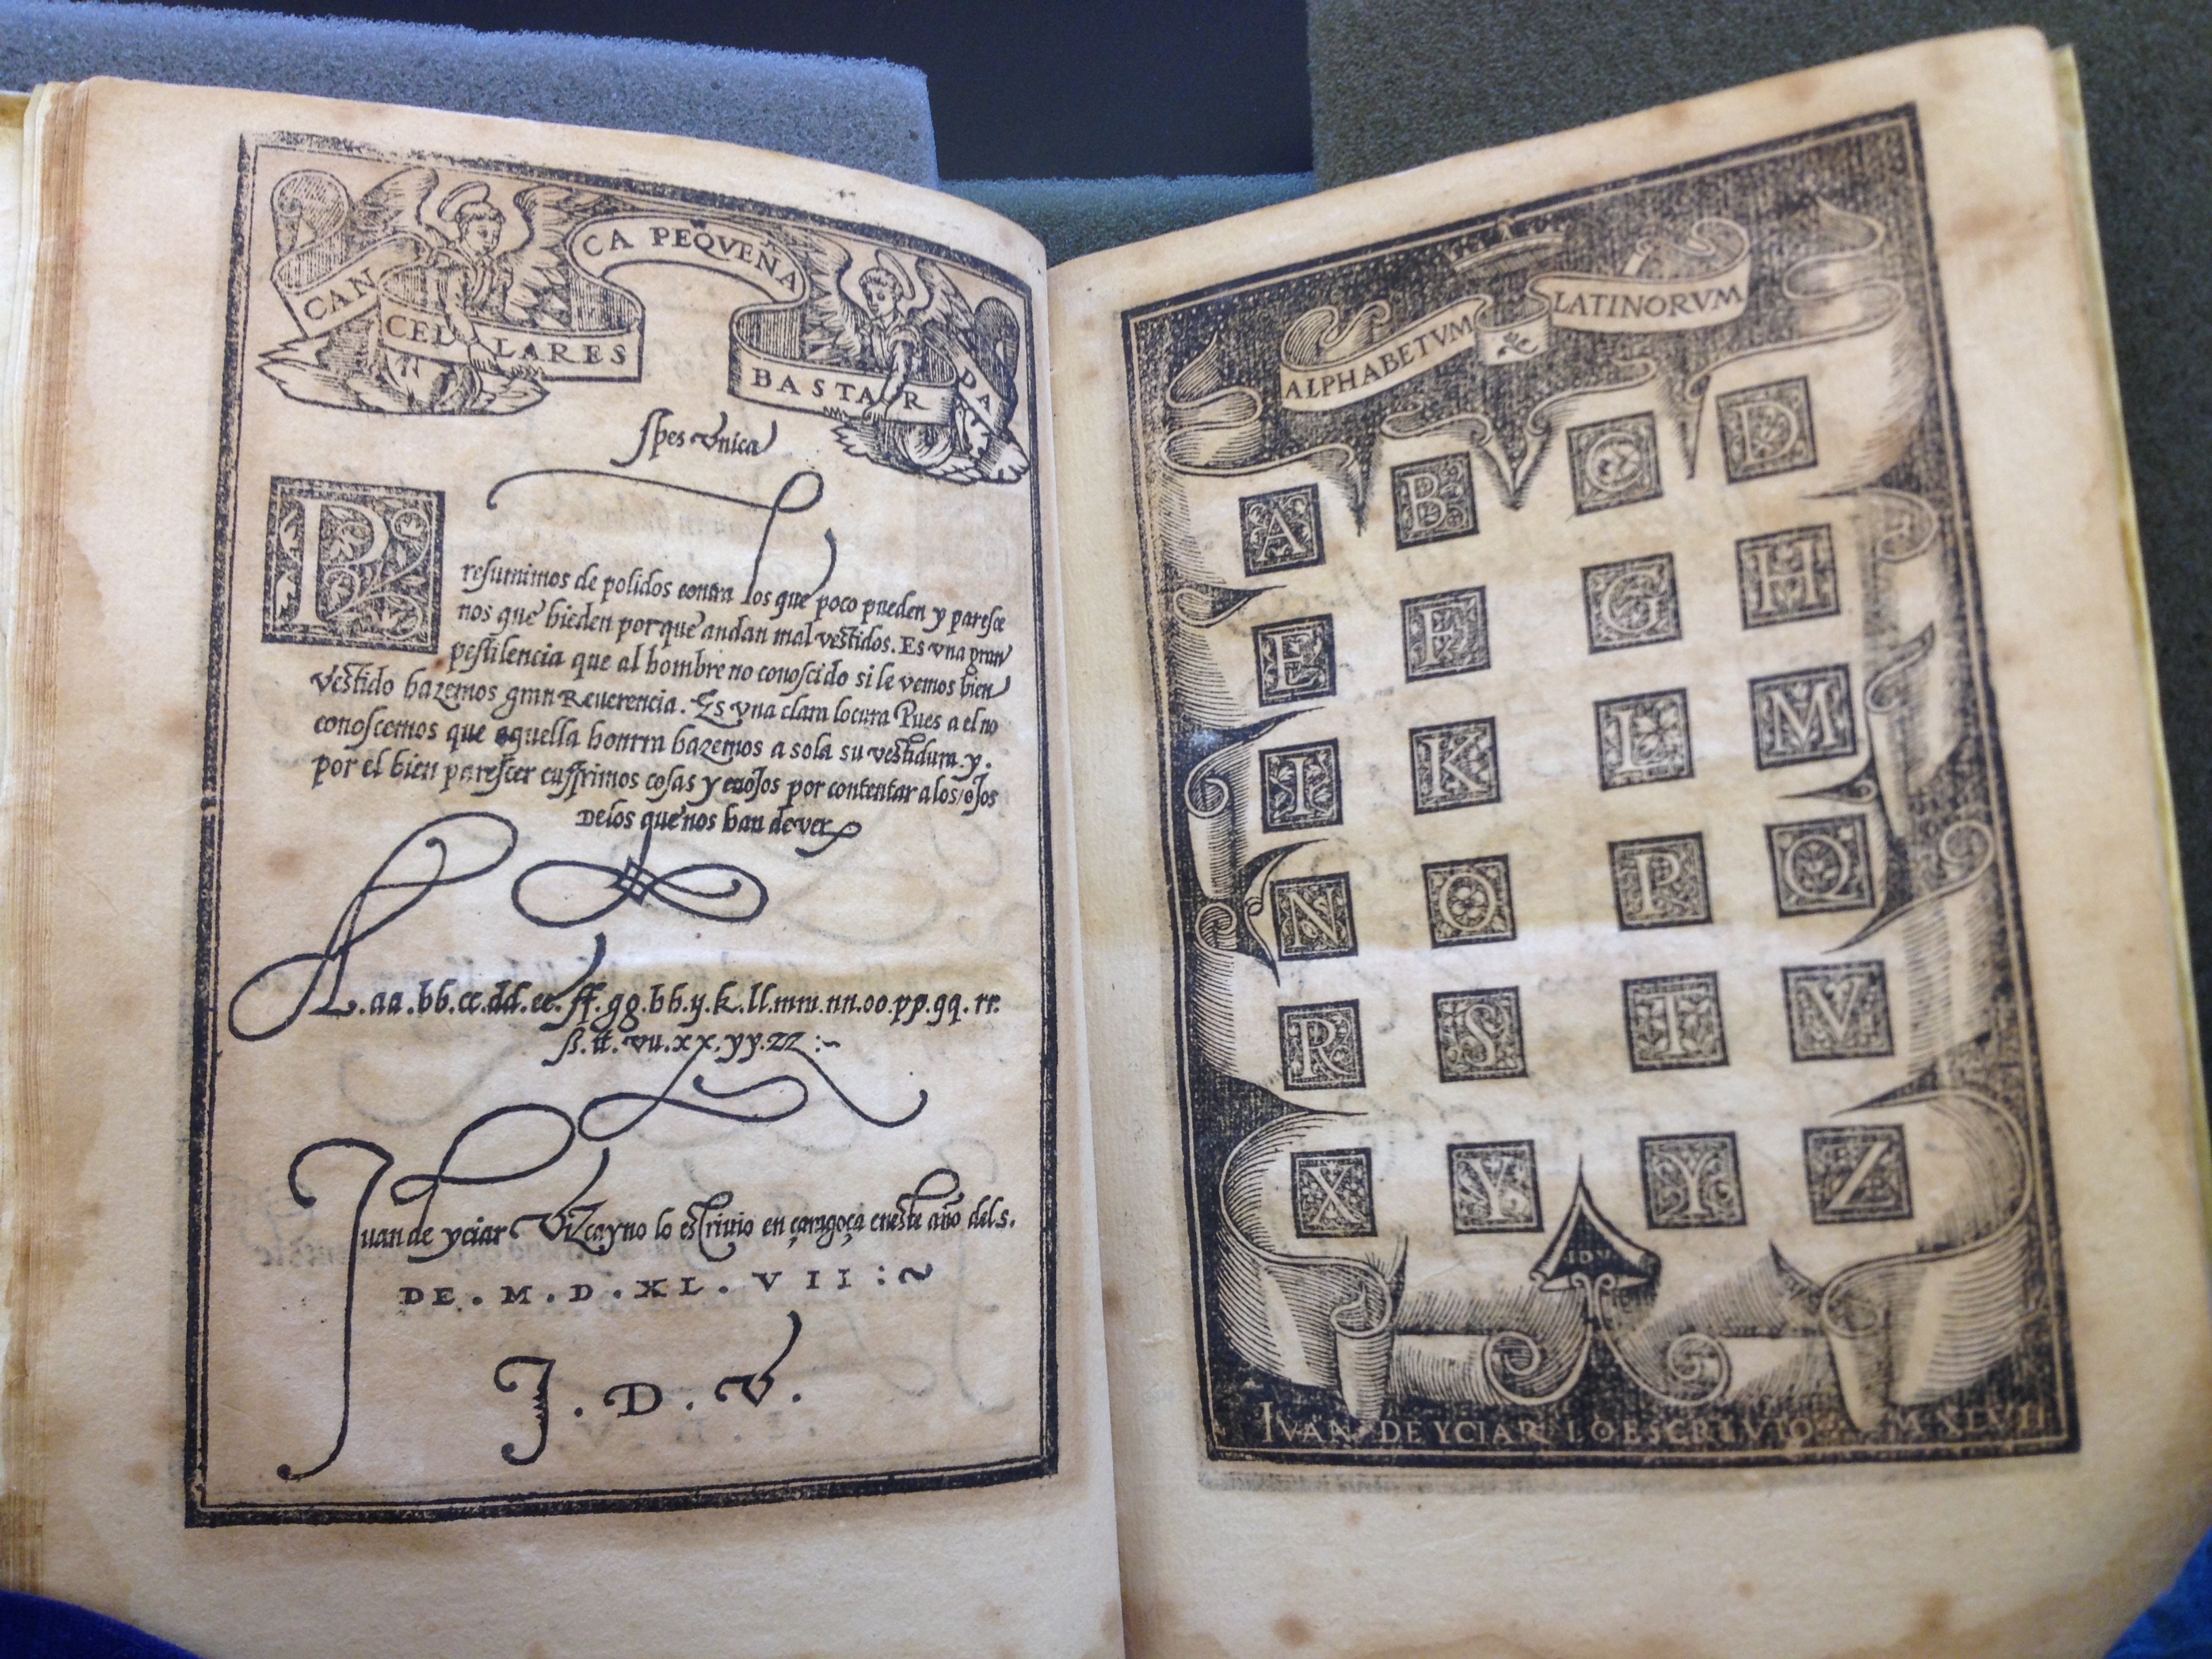 CANCELLARESCA PEQVEÑA
BASTARDA
Spes vnica
Presumimos de polidos contra los que poco pueden y paresce
nos que hieden porque andan mal vestidos. Es vna gran
pestilencia que al hombre no conoscido si le vemos bien
vestido hazemos gran Reuerencia. Es vna clara locura Pues a el no
conoscemos que aquella honrra hazemos a sola su vestidura. y.
por el bien parescer cuffrimos cosas y enojos por contentar a los ojos
Delos que nos han de ver
A.aa.bb.cc.dd.ee.ff.gg.hh.y.k.ll.mm.nn.oo.pp.qq.rr.
ß.tt.vu.xx.yy.zz :~
Juan de yciar Vizcayno lo escrivio en çaragoça eneste año del.s.
DE.M.D.XL.VII:~
J.D.V.
ALPHABETVM LATINORVM
A B C D
E F G H
I K L M
N O P Q
R S T V
X Y Y Z
IDV
IVAN DE YCIAR LO ESCRIVIO M XLVII